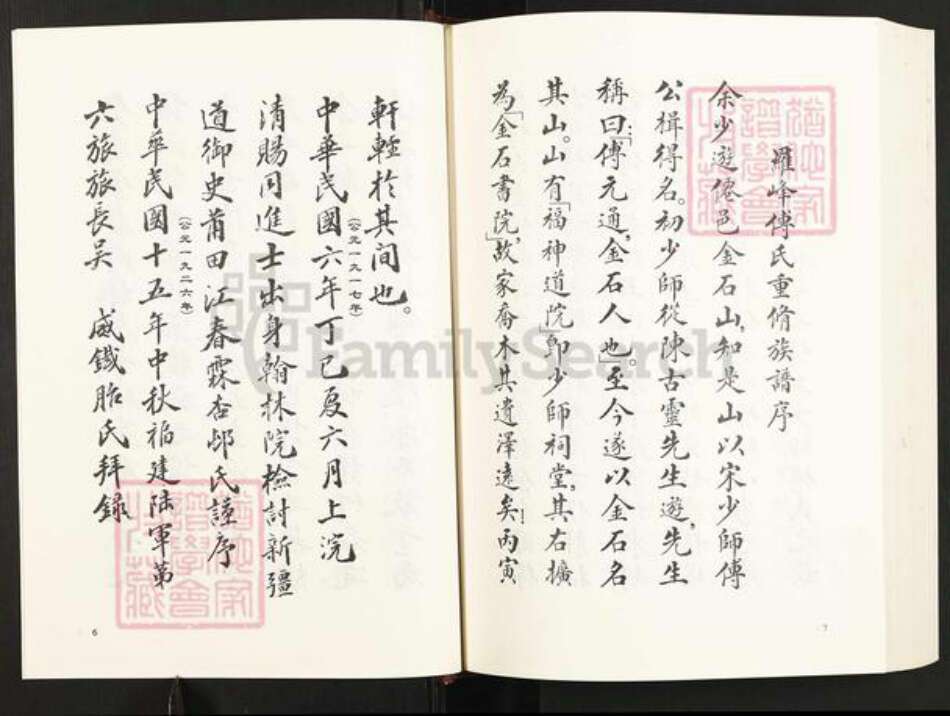 軒輊於其間也。
中華民國六年丁巳夏六月上浣
(公元一九一七年)
清賜同進士出身翰林院檢討新疆
道御史莆田江春霖杏邨氏謹序
中華民國十五年中秋福建陸軍第
(公元一九二六年)
六旅旅長吳　威鐵胎氏拜錄
6
猶他家
譜學會
收藏
羅峰傅氏重脩族譜序
余少遊僊邑金石山,知是山以宋少師傅
公楫得名。初少師從陳古靈先生遊,先生
稱曰:「傅元通,金石人也」。至今遂以金石名
其山。山有「福神道院」即少師祠堂,其右擴
為「金石書院」,故家喬木其遺澤遠矣!丙寅
7
猶他家
譜學會
收藏
FamilySearch